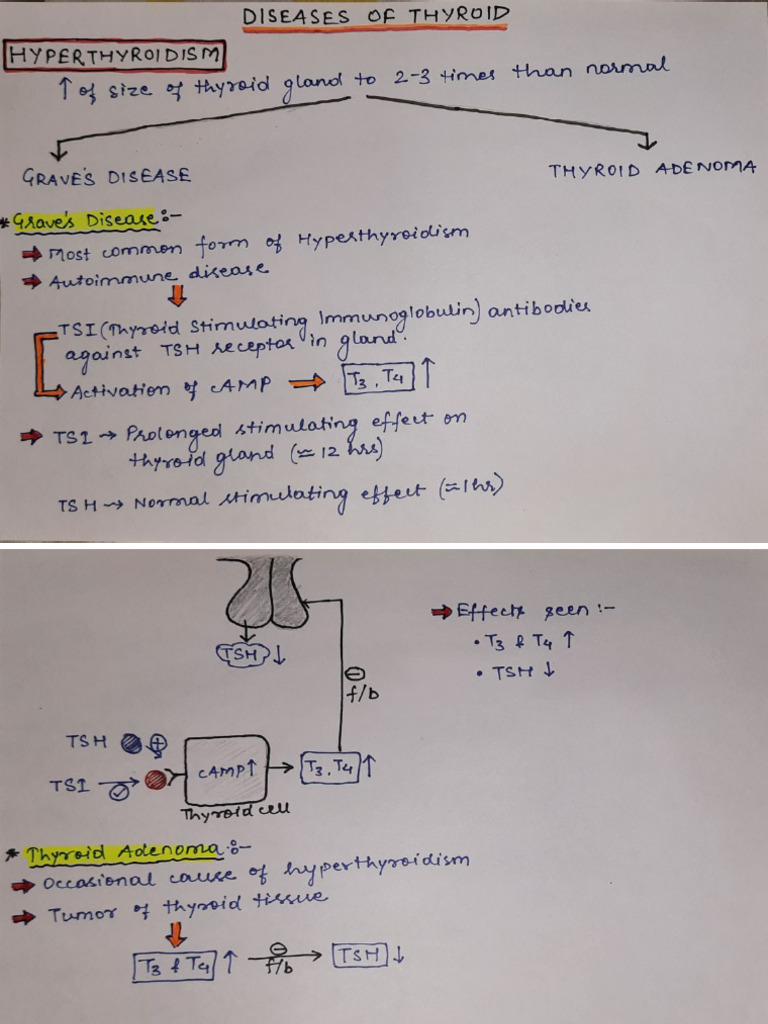 DISEASES OF THYROID
HYPERTHYROIDISM
↑ of size of thyroid gland to 2-3 times than normal
GRAVE'S DISEASE
THYROID ADENOMA
* Grave's Disease:-
→ Most common form of Hyperthyroidism
→ Autoimmune disease
TSI (Thyroid Stimulating Immunoglobulin) antibodies
against TSH receptor in gland.
Activation of cAMP → T3, T4 ↑
→ TSI → Prolonged stimulating effect on
thyroid gland (≈ 12 hrs)
TSH → Normal stimulating effect (≈1hr)
→ Effects seen :-
• T3 & T4 ↑
• TSH ↓
TSH ↓
⊖
f/b
TSH ⊕
TSI
cAMP↑ → T3, T4 ↑
Thyroid cell
* Thyroid Adenoma:-
→ Occasional cause of hyperthyroidism
→ Tumor of thyroid tissue
T3 & T4 ↑ ⊖ f/b → TSH ↓